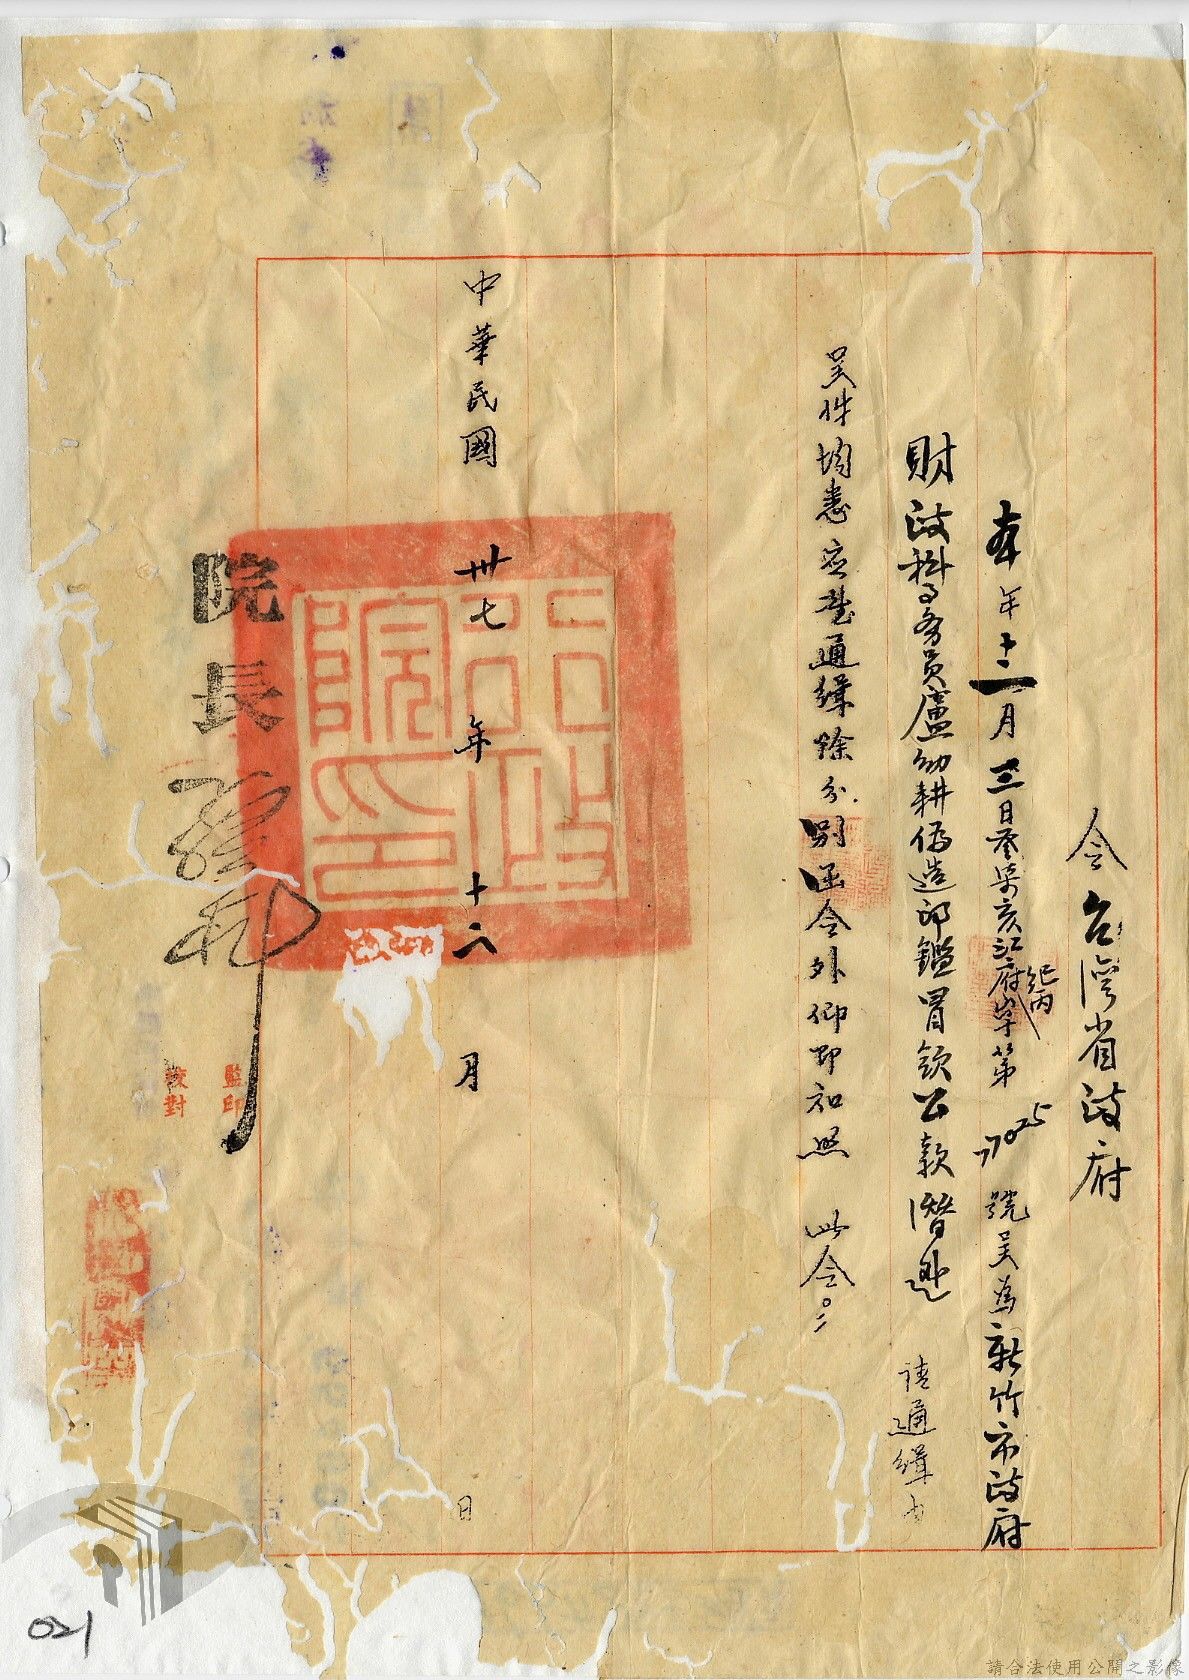 令台灣省政府
本年十二月三日叁柒亥江府紀丙字第77025號呈為新竹市政府
財政科事務員盧幼耕偽造印鑑冒領公款潛逃請通緝由
呈件均悉应堂通緝除分別函令外仰即知照此令。
中華民國卅七年十二月日
行政院印
院長孫科
監印
校對
021
請合法使用公開之影像